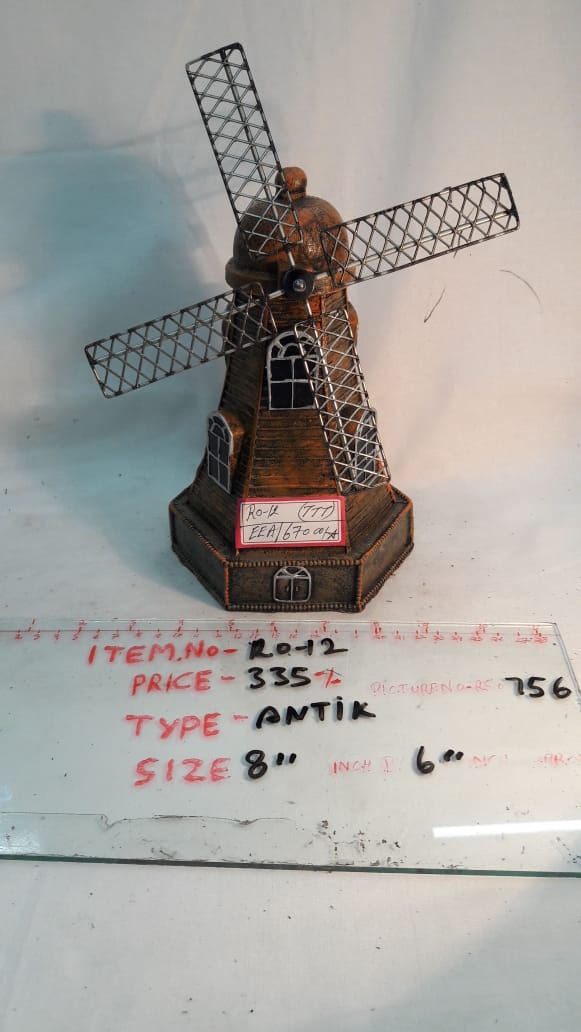 RO-12 (TTT)
EEA/670 00/
ITEM.No- RO-12
PRICE - 335
PICTURE NO- 756
TYPE - ANTIK
SIZE 8" INCH 6"